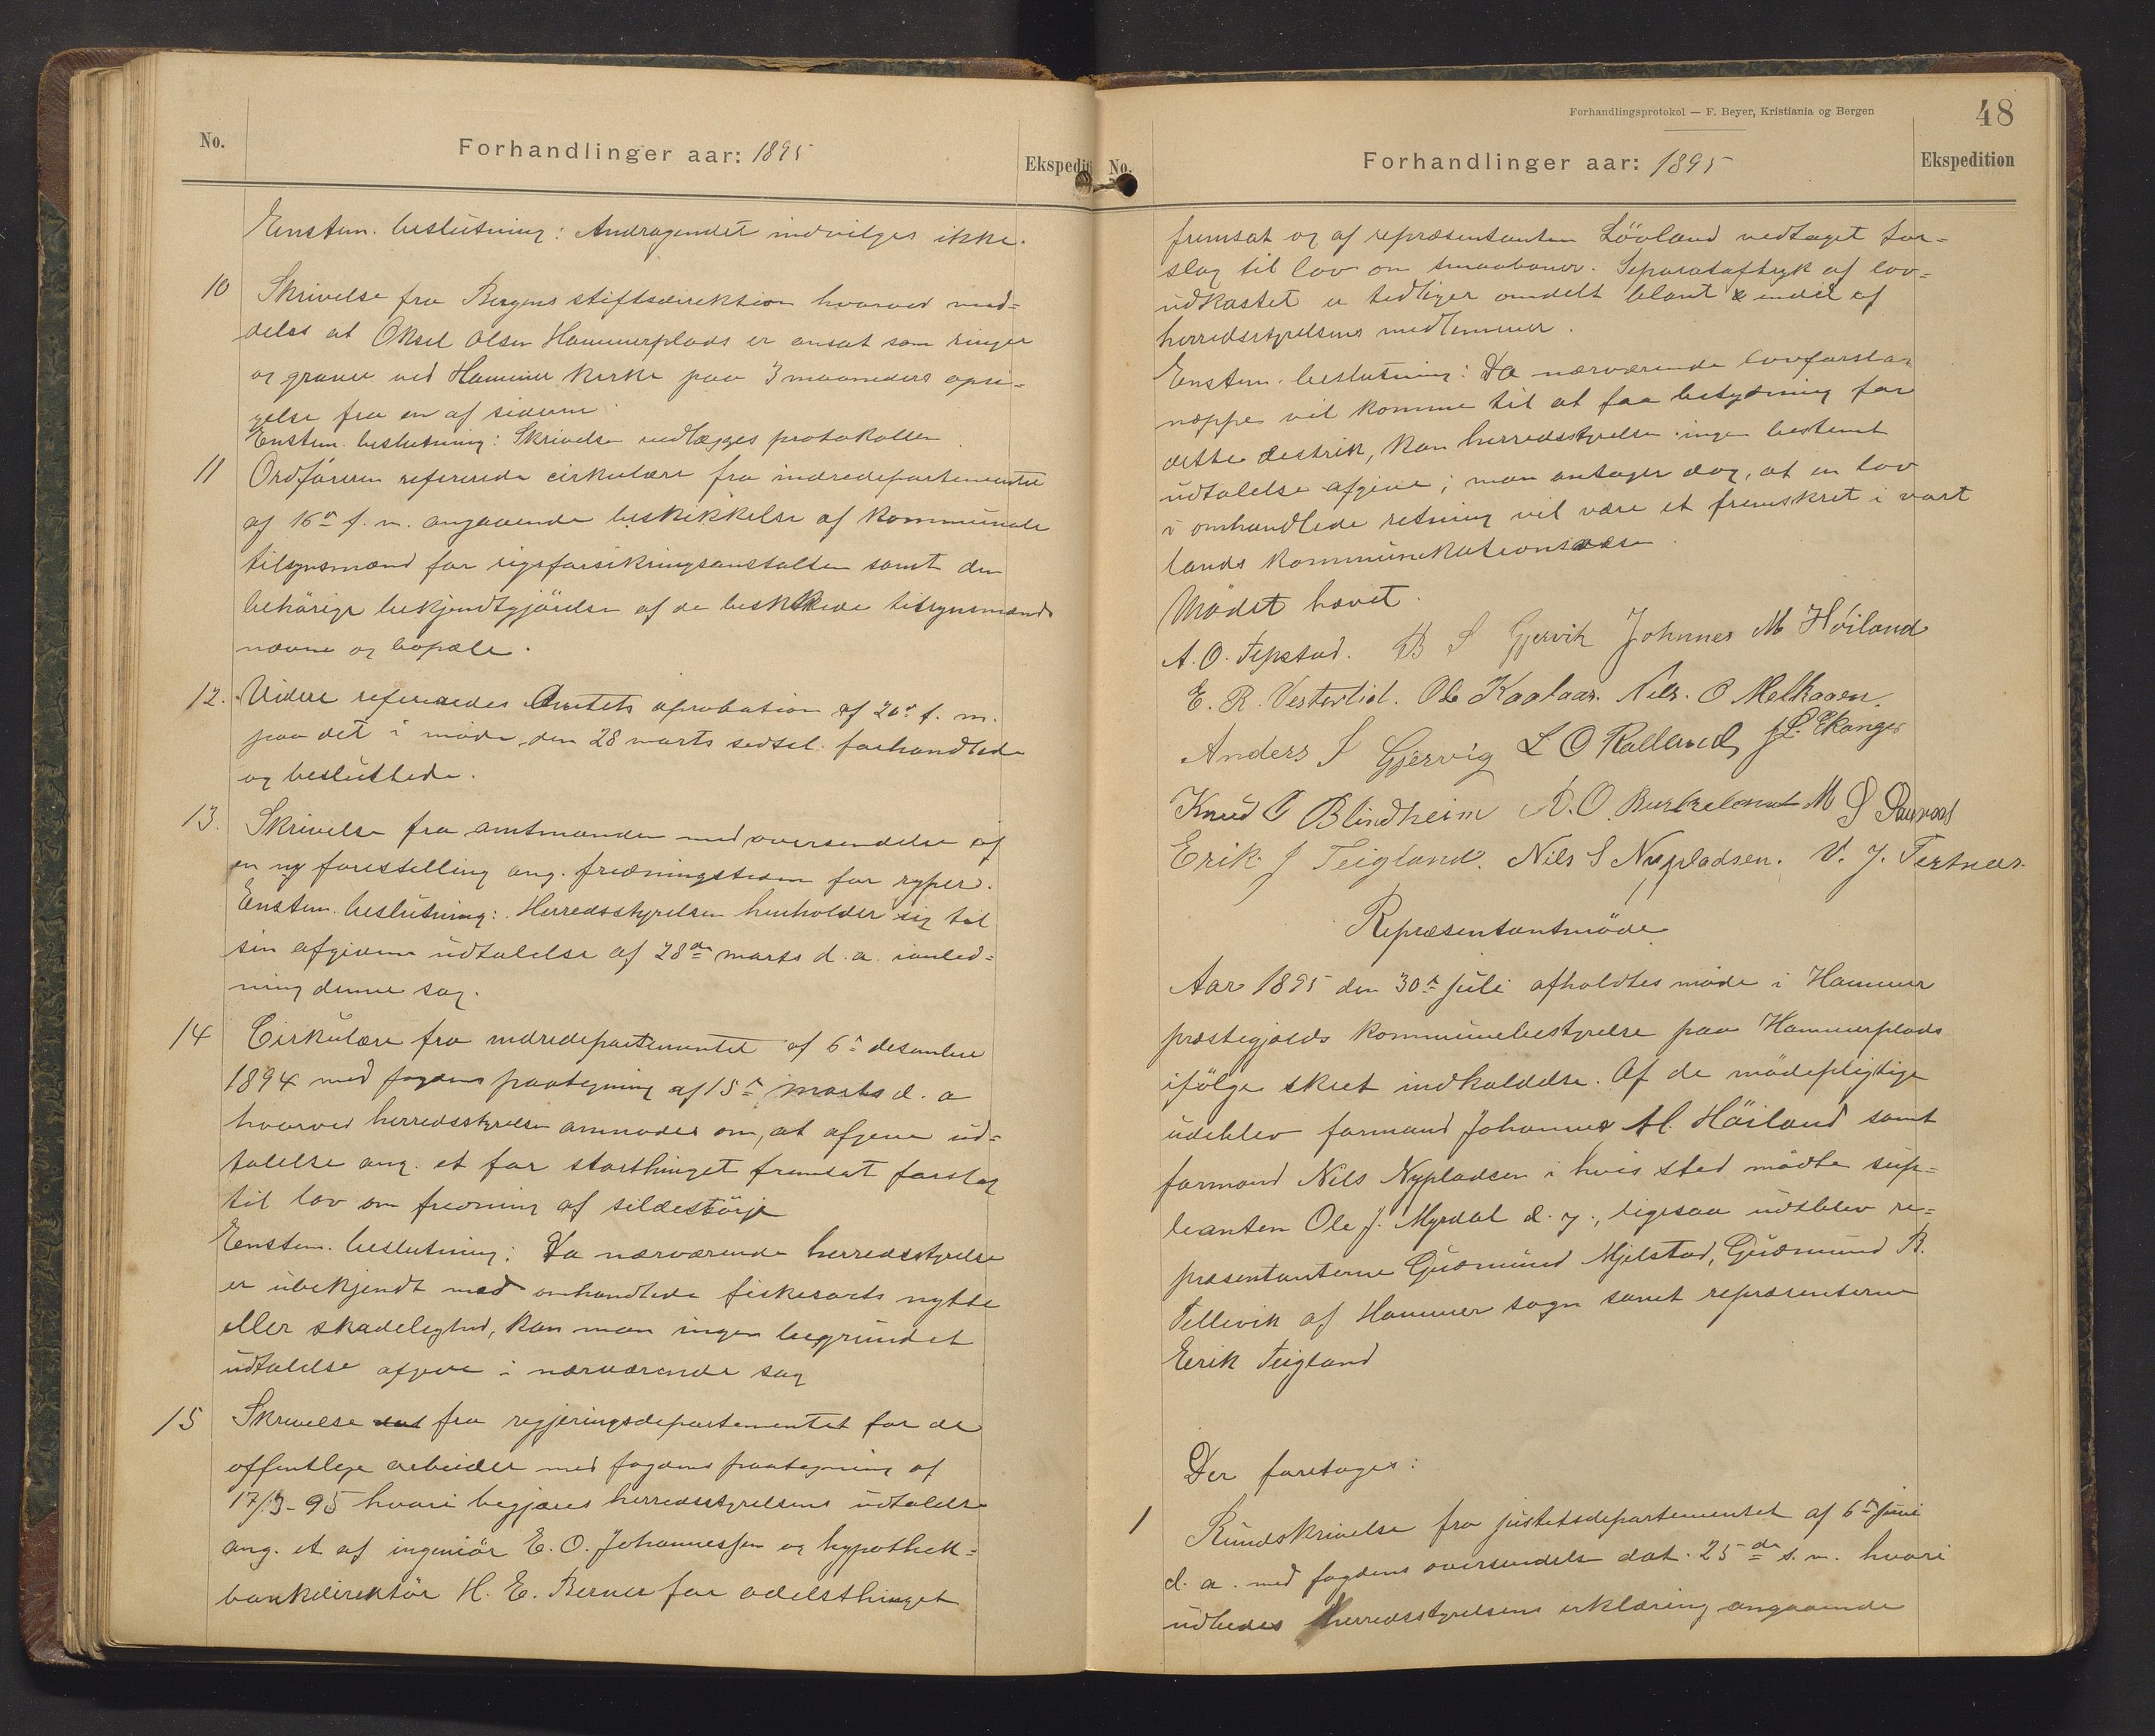 No.
Forhandlinger aar: 1895
Ekspedit
Enstem. beslutning: Andragendet indvilges ikke.
10 Skrivelse fra Bergens stiftsdirektion hvorved med=
deles at Oksel Olsen Hammerplads er ansat som ringer
og graver ved Hammer kirke paa 3 maaneders opsi=
gelse fra en af siderne.
Enstem. beslutning: Skrivelsen vedlægges protokollen.
11 Ordføreren refererede cirkulære fra indredepartementet
af 16de f. m. angaaende beskikkelse af kommunale
tilsynsmænd for rigsforsikringsanstalten samt den
behørige bekjendtgjørelse af de beskikkede tilsynsmænds
navne og bopæle.
12. Videre refereredes Amtets aprobation af 20de f. m.
paa det i møde den 28 marts sidstl. forhandlede
og besluttede.
13. Skrivelse fra amtmanden med oversendelse af
en ny forestilling ang. fredningstiden for ryper.
Enstem. beslutning: Herredsstyrelsen henholder sig til
sin afgivne udtalelse af 28de marts d. a. ianled=
ning denne sag.
14 Cirkulære fra indredepartementet af 6te desember
1894 med fogdens paategning af 15de marts d. a
hvorved herredsstyrelsen anmodes om, at afgive ud=
talelse ang. et for storthinget fremsat forslag
til lov om fredning af sildestørje
Enstem. beslutning: Da nærværende herredsstyrelse
er ubekjendt med omhandlede fiskesorts nytte
eller skadelighed, kan man ingen begrundet
udtalelse afgive i nærværende sag
15 Skrivelse fra regjeringsdepartementet for de
offentlige arbeider med fogdens paategning af
17/3-95 hvori begjæres herredsstyrelsens udtalelse
ang. et af ingeniør E. O. Johannessen og hypothek=
bankdirektør H. E. Berner for odelsthinget
Forhandlingsprotokol — F. Beyer, Kristiania og Bergen
48
No.
Forhandlinger aar: 1895
Ekspedition
fremsat og af repræsentanten Løvland vedtaget for=
slag til lov om smaabaner. Separataftryk af lov=
udkastet er tidligere omdelt blant endel af
herredsstyrelsens medlemmer.
Enstem. beslutning: Da nærværende lovforslag
neppe vil komme til at faa betydning for
dette destrik, kan herredsstyrelsen ingen bestemt
udtalelse afgive; man antager dog, at en lov
i omhandlede retning vil være et fremskret i vort
lands kommunikationsvæsen.
Mødet hævet.
A. O. Tepstad. B S Gjervik Johnnes M Høiland
E. R. Vestertid. Ole Kaalaas. Nils. O Melkaaen.
Anders S Gjervig L O Rolland J. L. Ekanger
Knud O Blindheim A. O. M S
Erik. J Teigland. Nils S Nypladsen. V. J. Tertnes.
Repræsentantmøde
Aar 1895 den 30te juli afholdtes møde i Hammer
præstegjælds kommunebestyrelse paa Hammerplads
ifølge skret indkaldelse. Af de mødepligtige
udeblev formand Johannes M. Høiland samt
formand Nils Nypladsen i hvis sted mødte sup=
leanten Ole J. Myrdal d. y., ligesaa udeblev re=
præsentanterne Gudmund Mjelstad, Gudmund B.
Tellevik af Hammer sogn samt repræsenterne
Eerik Teigland
Der foretoges:
1 Rundskrivelse fra justitsdepartementet af 6te juni
d. a. med fogdens oversendelse dat. 25de s. m. hvori
udbedes herredsstyrelsens erklæring angaaende